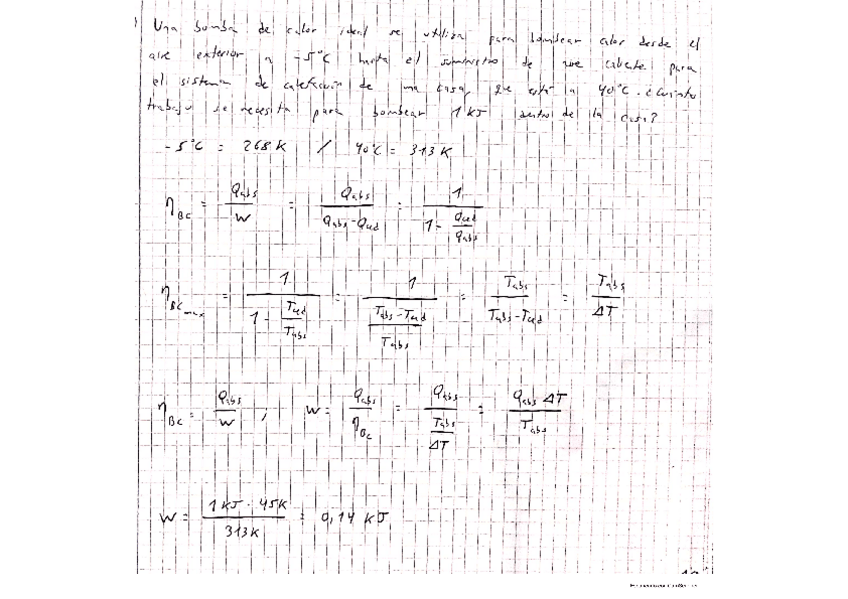 Una bomba de calor ideal se utiliza para bombear calor desde el
aire exterior a -5°C hasta el suministro de aire caliente para
el sistema de calefacción de una casa, que está a 40°C. ¿Cuánto
trabajo se necesita para bombear 1 kJ dentro de la casa?
-5°C = 268 K / 40°C = 313 K
η_BC = Q_abs/W = Q_abs/(Q_abs - Q_ced) = 1/(1 - Q_ced/Q_abs)
η_BC_max = 1/(1 - T_ced/T_abs) = 1/((T_abs - T_ced)/T_abs) = T_abs/(T_abs - T_ced) = T_abs/ΔT
η_BC = Q_abs/W ; W = Q_abs/η_BC = Q_abs/(T_abs/ΔT) = Q_abs ΔT/T_abs
W = 1 kJ · 45K/313K = 0,14 kJ